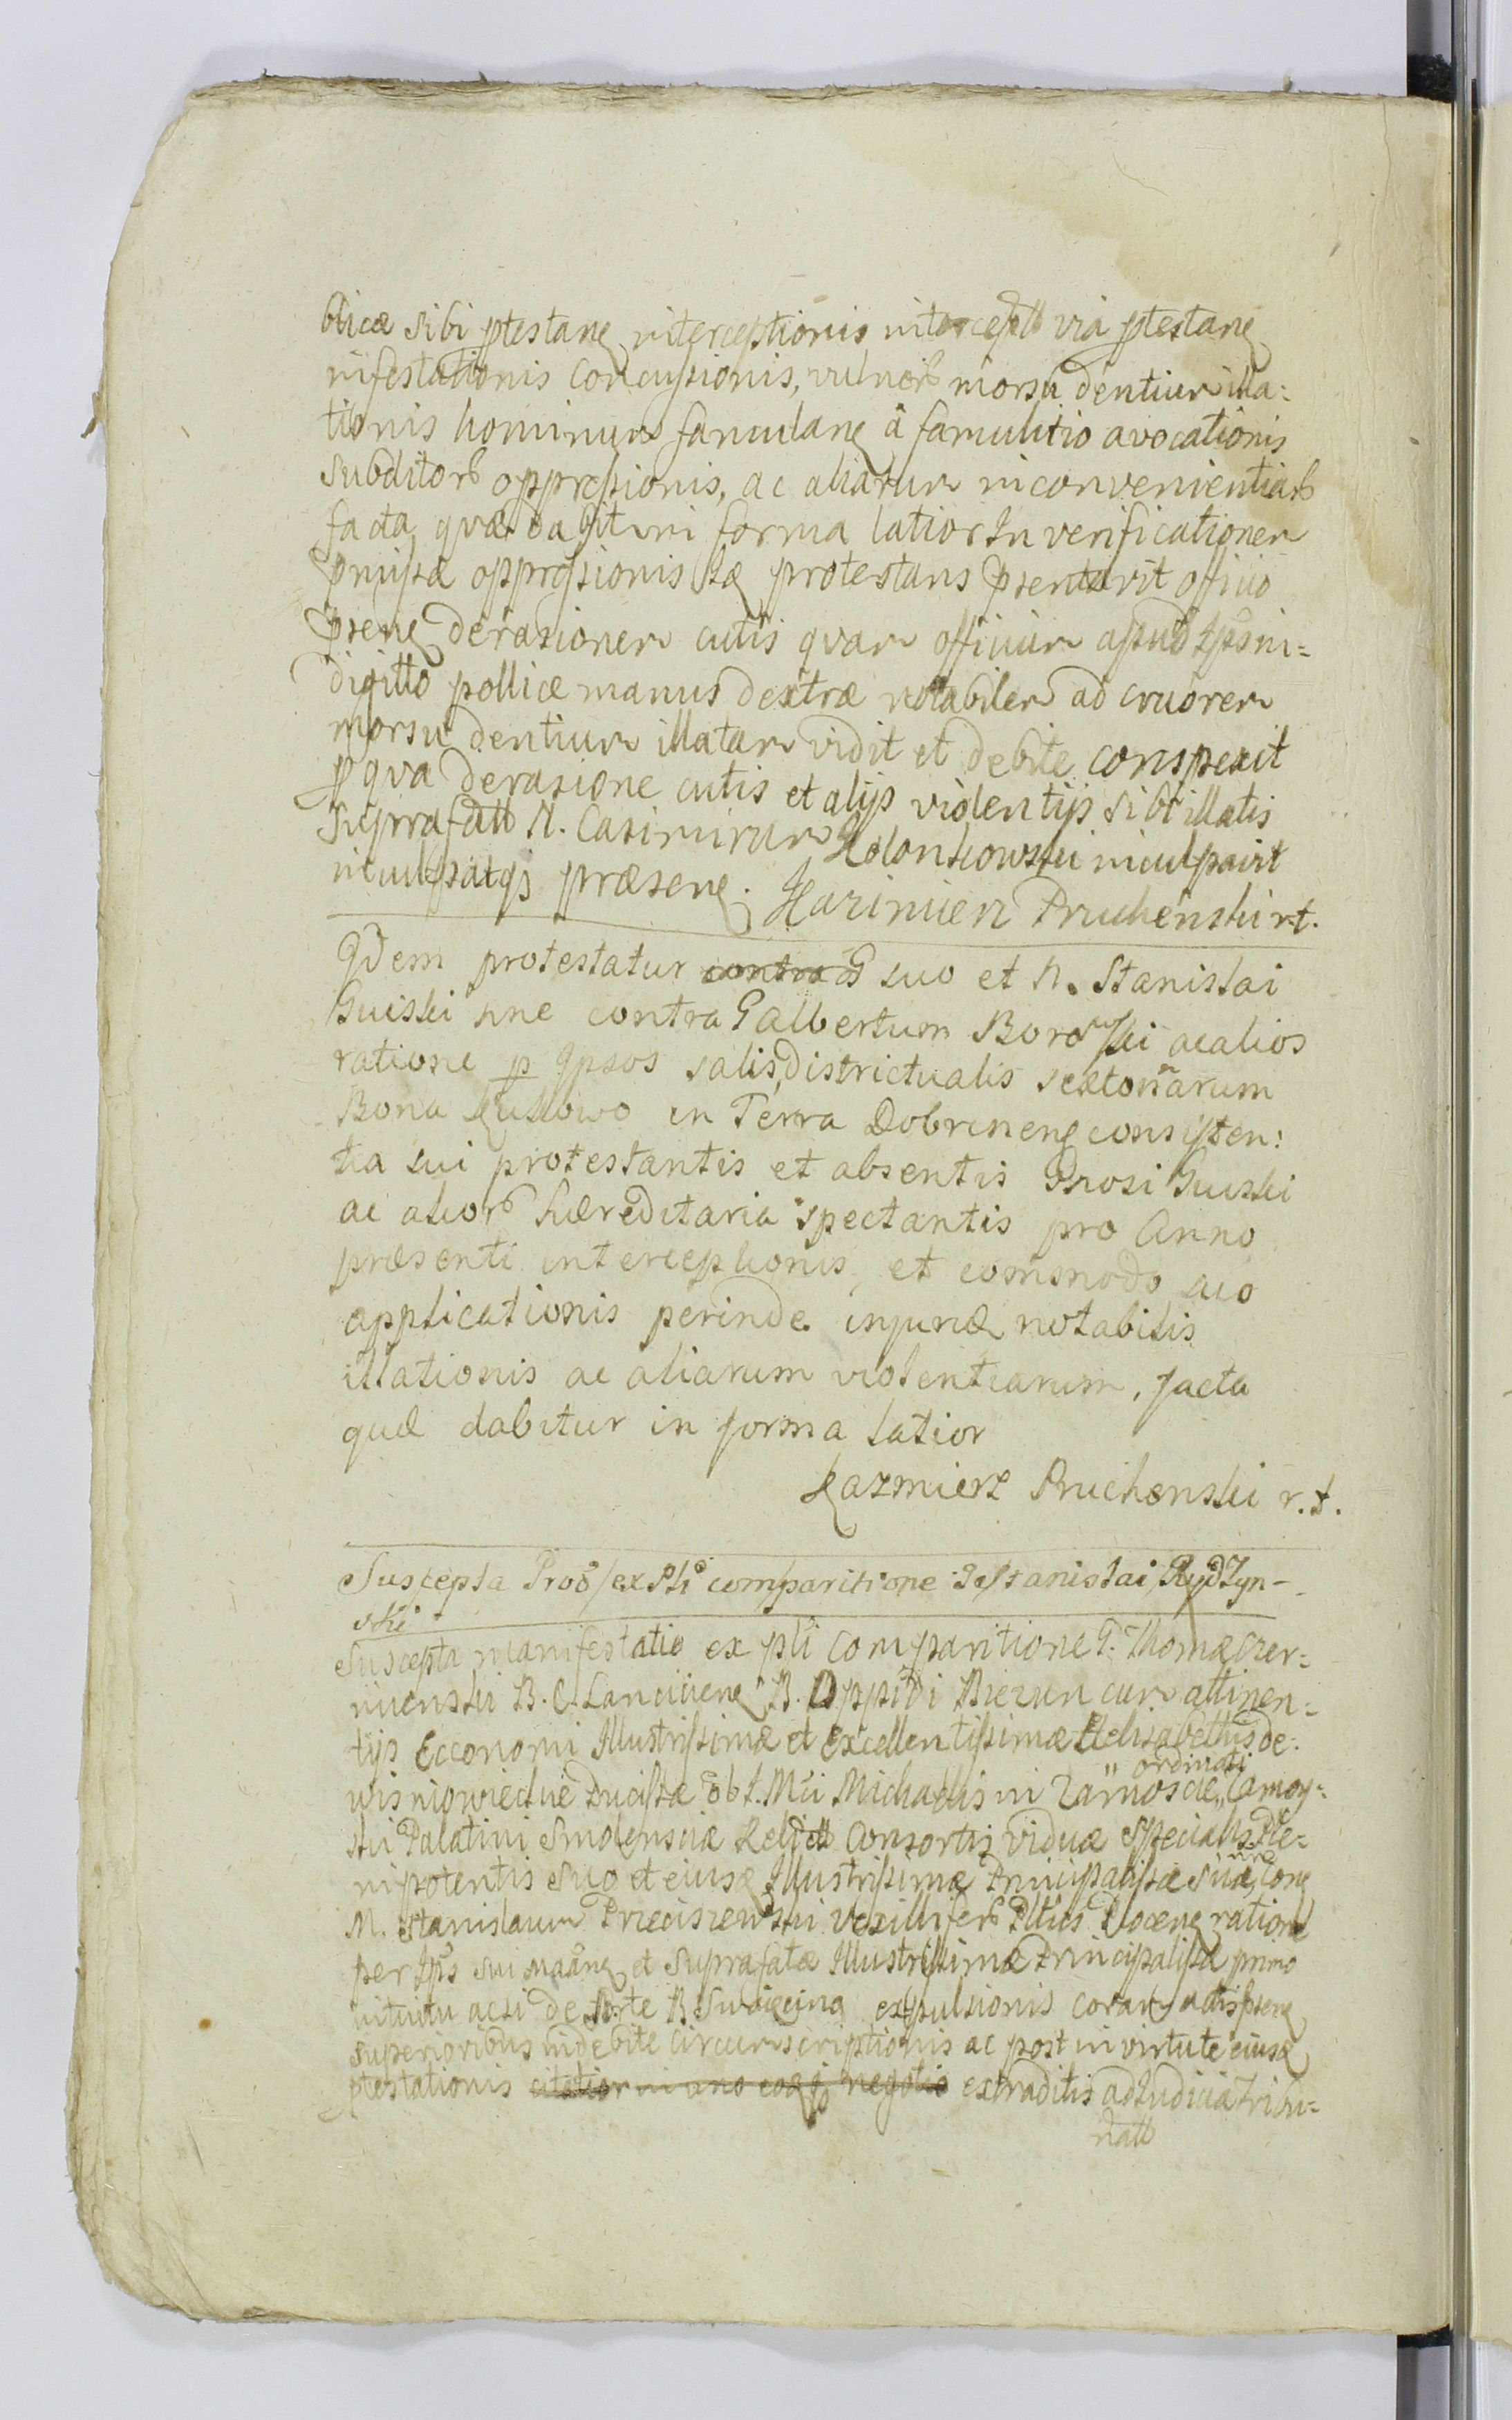 blicæ sibi ptestanę interceptionis intercepto via ptestanę
infestationis concussionis, vulnerb morsu dentium illa=
tionis hominum famulanę â famulitio avocationis
subditorb oppressionis, ac aliarum inconvenientiarb
facta quæ dabitur in forma latior In verificationem
pmissæ oppressionis idę protestans psentavit officio
psenę derasionem cutis quam officium apud Ipsm in=
digitto pollicæ manus dextræ notabilem ad cruorem
morsu dentium illatam vidit et debite conspexit
p qua derasione cutis et alijs violentijs sibi illatis
suprafatt N. Casimirum Kolonkowski inculpavit
inculpatqz præsenę. Kazimierz Pruchenski r.t.
Idem protestatur contra G suo et N. Stanislai
Guiski nne contra G Albertum Borowski ac alios
ratione p Ipsos salis districtualis sextonarum
Bona Rusowo in Terra Dobrinenę consisten:
tia sui protestantis et absentis Grosi Guiski
ac aliorb hæreditaria spectantis pro Anno
præsenti interceptionis, et commodo suo
applicationis perinde injuriæ notabilis
illationis ac aliarum violentiarum, facta
quæ dabitur in forma latior
Kazmierz Pruchenski r.t.
Suscepta Proo ex Pli comparitione G Stanislai Rydzyn-
ski
Suscepta manifestatio ex pli comparitione G. Thomæ Czer=
nienski B. C. Lanciciene B. Oppidi Biezun cum attinen=
tijs Economi Illustrissimæ et Excellentissimæ Helisabethis de
Wisniowieckie Ducissæ ob I. Mci Michaelis in Zamoscie „ordinati Zamoy=
ski Palatini Smolensciæ Relictt Consortis viduæ specialis Ple=
nipotentis suo et ejusdę Illustrissimæ Principalissæ suæ nne Conę
M. Stanislaum Przeciszewski vexilliferb Pltus Plocenę ratione
per Ips sui Maanę et suprafatæ Illustrissimæ Principalissæ primo
intuitu acsi de sorte B. Swiecina expulsionis coram actis psenę
superioribus indebite circumscriptionis ac post in virtute ejusdę
ptestationis extraditis ad Judicia Tribu=
natt